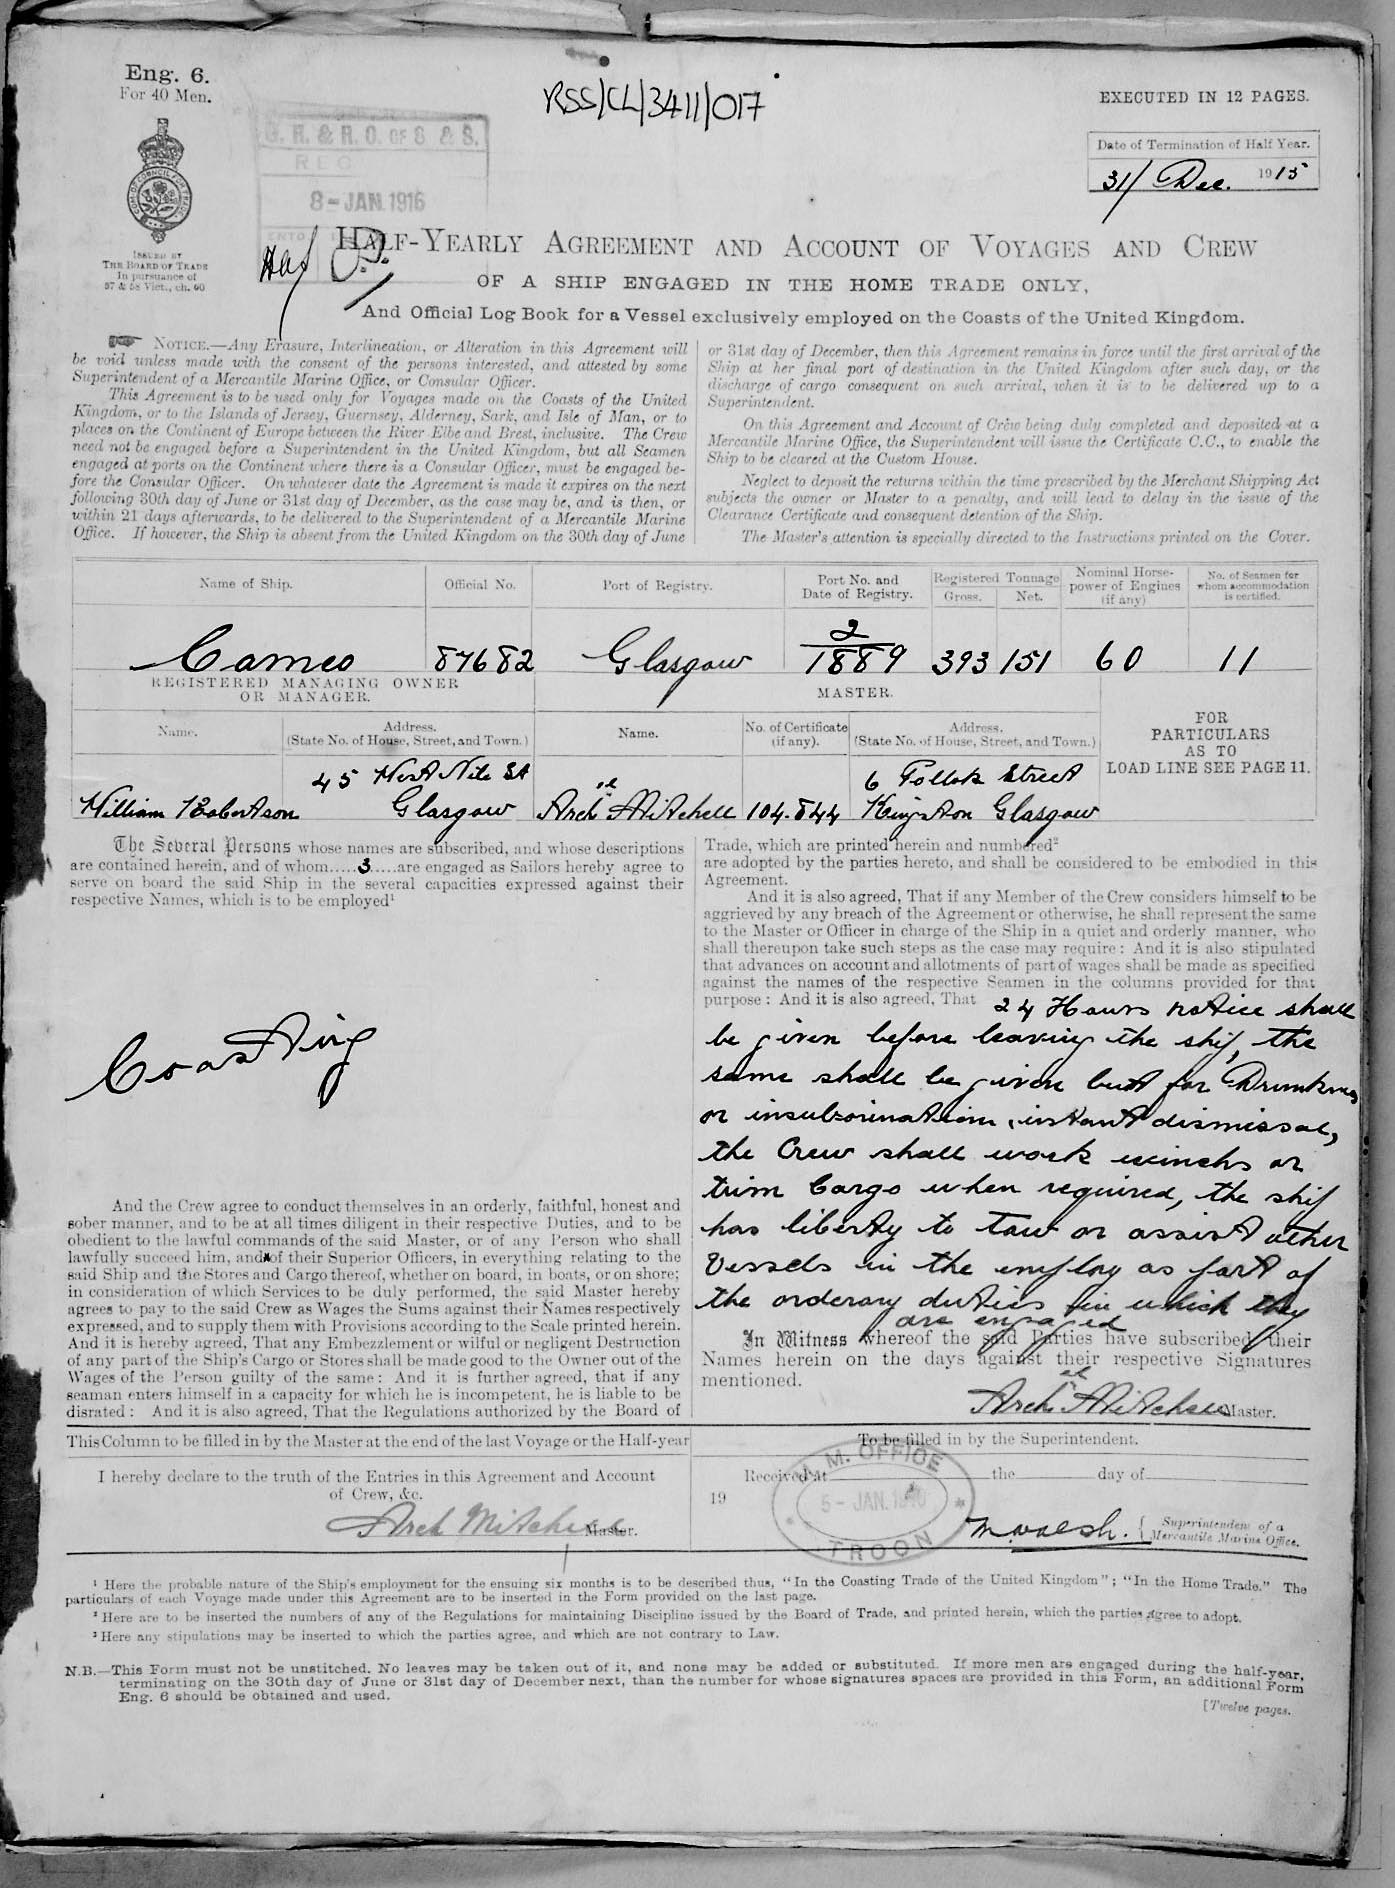 Eng. 6.
For 40 Men.
RSS/CL/3411/017
EXECUTED IN 12 PAGES.
Date of Termination of Half Year.
31/ Dec. 1915
G. R. & R. O. OF S & S.
REC
8-JAN.1916
ISSUED BY
THE BOARD OF TRADE
In pursuance of
57 & 58 Vict., ch. 60
HALF-YEARLY AGREEMENT AND ACCOUNT OF VOYAGES AND CREW
OF A SHIP ENGAGED IN THE HOME TRADE ONLY,
And Official Log Book for a Vessel exclusively employed on the Coasts of the United Kingdom.
NOTICE.—Any Erasure, Interlineation, or Alteration in this Agreement will
be void unless made with the consent of the persons interested, and attested by some
Superintendent of a Mercantile Marine Office, or Consular Officer.
This Agreement is to be used only for Voyages made on the Coasts of the United
Kingdom, or to the Islands of Jersey, Guernsey, Alderney, Sark, and Isle of Man, or to
places on the Continent of Europe between the River Elbe and Brest, inclusive. The Crew
need not be engaged before a Superintendent in the United Kingdom, but all Seamen
engaged at ports on the Continent where there is a Consular Officer, must be engaged be-
fore the Consular Officer. On whatever date the Agreement is made it expires on the next
following 30th day of June or 31st day of December, as the case may be, and is then, or
within 21 days afterwards, to be delivered to the Superintendent of a Mercantile Marine
Office. If however, the Ship is absent from the United Kingdom on the 30th day of June
or 31st day of December, then this Agreement remains in force until the first arrival of the
Ship at her final port of destination in the United Kingdom after such day, or the
discharge of cargo consequent on such arrival, when it is to be delivered up to a
Superintendent.
On this Agreement and Account of Crew being duly completed and deposited at a
Mercantile Marine Office, the Superintendent will issue the Certificate C.C., to enable the
Ship to be cleared at the Custom House.
Neglect to deposit the returns within the time prescribed by the Merchant Shipping Act
subjects the owner or Master to a penalty, and will lead to delay in the issue of the
Clearance Certificate and consequent detention of the Ship.
The Master's attention is specially directed to the Instructions printed on the Cover.
Name of Ship.
Official No.
Port of Registry.
Port No. and
Date of Registry.
Registered Tonnage
Gross.
Net.
Nominal Horse-
power of Engines
(if any)
No. of Seamen for
whom accommodation
is certified.
Cameo
87682
Glasgow
2/1889
393
151
60
11
REGISTERED MANAGING OWNER
OR MANAGER.
MASTER.
FOR
PARTICULARS
AS TO
LOAD LINE SEE PAGE 11.
Name.
Address.
(State No. of House, Street, and Town.)
Name.
No. of Certificate
(if any).
Address.
(State No. of House, Street, and Town.)
William Robertson
45 West Nile St
Glasgow
Archd Mitchell
104.844
6 Pollok Street
Kingston Glasgow
The Several Persons whose names are subscribed, and whose descriptions
are contained herein, and of whom.....3.....are engaged as Sailors hereby agree to
serve on board the said Ship in the several capacities expressed against their
respective Names, which is to be employed¹
Coasting
And the Crew agree to conduct themselves in an orderly, faithful, honest and
sober manner, and to be at all times diligent in their respective Duties, and to be
obedient to the lawful commands of the said Master, or of any Person who shall
lawfully succeed him, and of their Superior Officers, in everything relating to the
said Ship and the Stores and Cargo thereof, whether on board, in boats, or on shore;
in consideration of which Services to be duly performed, the said Master hereby
agrees to pay to the said Crew as Wages the Sums against their Names respectively
expressed, and to supply them with Provisions according to the Scale printed herein.
And it is hereby agreed, That any Embezzlement or wilful or negligent Destruction
of any part of the Ship's Cargo or Stores shall be made good to the Owner out of the
Wages of the Person guilty of the same: And it is further agreed, that if any
seaman enters himself in a capacity for which he is incompetent, he is liable to be
disrated: And it is also agreed, That the Regulations authorized by the Board of
Trade, which are printed herein and numbered²
are adopted by the parties hereto, and shall be considered to be embodied in this
Agreement.
And it is also agreed, That if any Member of the Crew considers himself to be
aggrieved by any breach of the Agreement or otherwise, he shall represent the same
to the Master or Officer in charge of the Ship in a quiet and orderly manner, who
shall thereupon take such steps as the case may require: And it is also stipulated
that advances on account and allotments of part of wages shall be made as specified
against the names of the respective Seamen in the columns provided for that
purpose: And it is also agreed, That 24 Hours notice shall
be given before leaving the ship, the
same shall be given but for Drunkness
or insubordination, instant dismissal,
the Crew shall work winchs or
trim Cargo when required, the ship
has liberty to tow or assist other
Vessels in the employ as part of
the orderary duties in which they
are engaged
In Witness whereof the said Parties have subscribed their
Names herein on the days against their respective Signatures
mentioned.
Archd Mitchell Master.
This Column to be filled in by the Master at the end of the last Voyage or the Half-year
I hereby declare to the truth of the Entries in this Agreement and Account
of Crew, &c.
Arch Mitchell Master.
To be filled in by the Superintendent.
Received at the day of
19
M. M. OFFICE
5-JAN.1916
TROON
M Walsh.
Superintendent of a
Mercantile Marine Office.
¹ Here the probable nature of the Ship's employment for the ensuing six months is to be described thus, "In the Coasting Trade of the United Kingdom"; "In the Home Trade." The
particulars of each Voyage made under this Agreement are to be inserted in the Form provided on the last page.
² Here are to be inserted the numbers of any of the Regulations for maintaining Discipline issued by the Board of Trade, and printed herein, which the parties agree to adopt.
³ Here any stipulations may be inserted to which the parties agree, and which are not contrary to Law.
N.B.—This Form must not be unstitched. No leaves may be taken out of it, and none may be added or substituted. If more men are engaged during the half-year,
terminating on the 30th day of June or 31st day of December next, than the number for whose signatures spaces are provided in this Form, an additional Form
Eng. 6 should be obtained and used.
[Twelve pages.